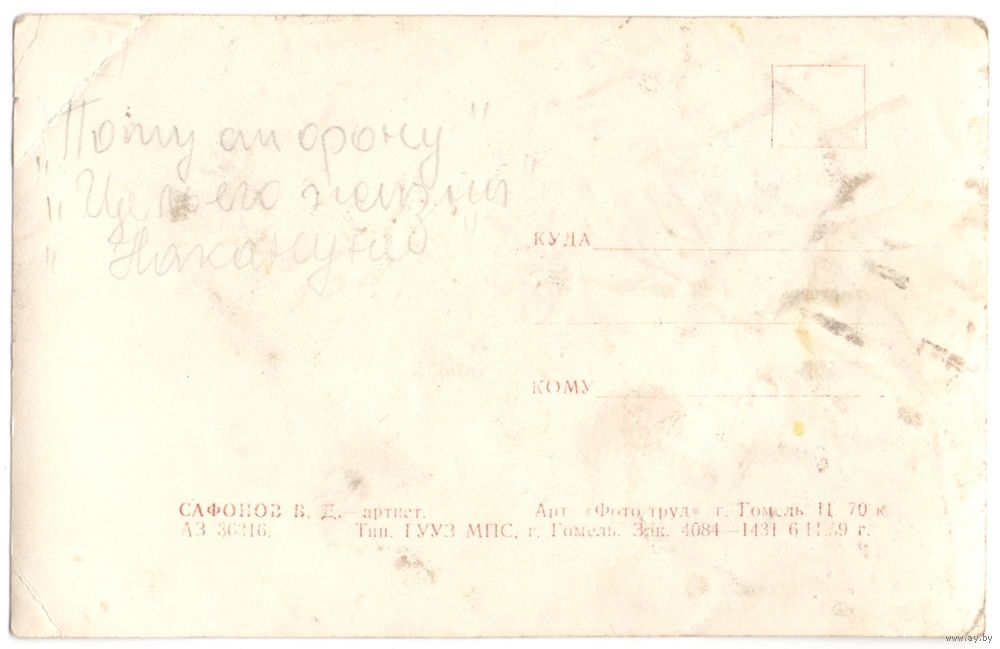 "По ту сторону"
"Цель его жизни"
"Накануне"
КУДА
КОМУ
САФОНОВ В. Д.—артист. Арт. «Фото-труд» г. Гомель Ц 70 к
АЗ 36316. Тип. ГУУЗ МПС, г. Гомель. Зак. 4084—1431 6-II.59 г.
www.ay.by